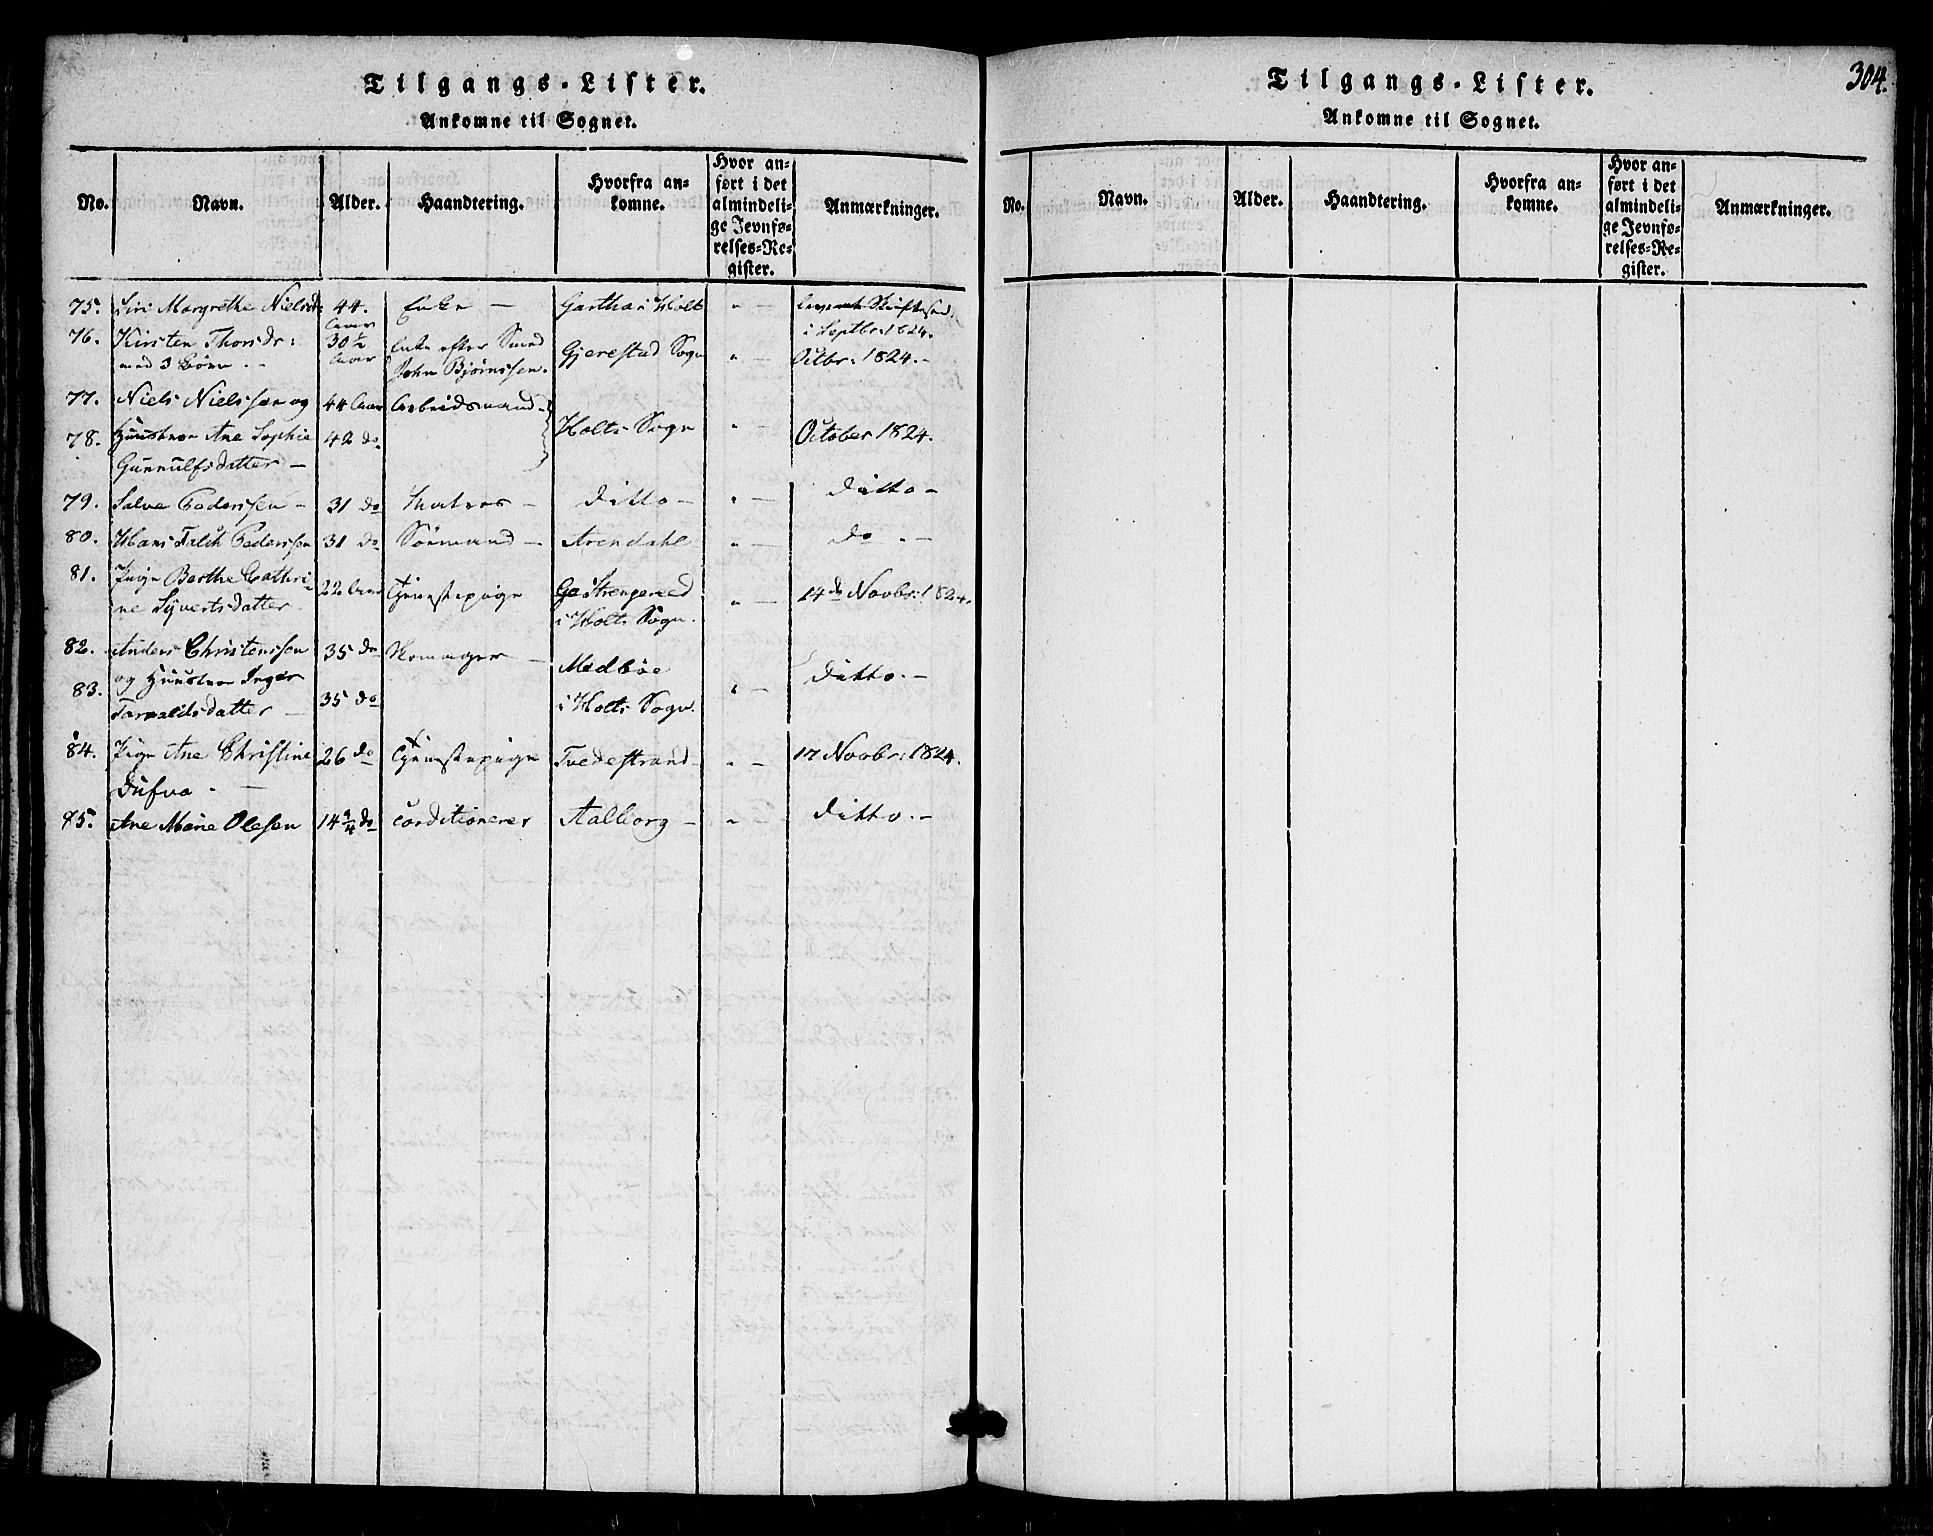 Tilgangs-Lister.
Ankomne til Sognet.
No. Navn. Alder. Haandtering. Hvorfra ankomne. Hvor anført i det almindelige Jevnførelses-Register. Anmærkninger.
75. Siri Margrethe Nielsd: 44. Aar Enke — Garthai Holt " — i Septbr: 1824.
76. Kirsten Thorsdr: 30½ Aar Enke efter Smed Gjerestad Sogn " — Octbr: 1824. —
med 3 Börn. — John Bjørnssen.
77. Niels Nielssen og 44 Aar Arbeidsmand —
78. Hustroe Ane Sophie 42 do Holts Sogn " — October 1824.
Gunnulfsdatter —
79. Salve Pederssen — 31 do Matros — ditto — " — ditto —
80. Hans Falck Pederssen 31 do Sömand — Arendahl " — do. —
81. Pige Barthe Cathri- 22 Aar Tjenestepige Ge Strengereed " — 14de Novbr: 1824.
ne Syvertsdatter i Holts Sogn.
82. Anders Christenssen 35 do — Medböe ditto. —
83. og Hustroe Inger i Holts Sogn. " —
Tarvaldsdatter — 35 do
84. Pige Ane Christine 26 do Tjenestepige Tvedestrand " — 17 Novbr: 1824.
Dufva. —
85. Ane Marie Olesen 14¾ do conditionerer Aalborg — " — ditto. —
304.
Tilgangs-Lister.
Ankomne til Sognet.
No. Navn. Alder. Haandtering. Hvorfra ankomne. Hvor anført i det almindelige Jevnførelses-Register. Anmærkninger.